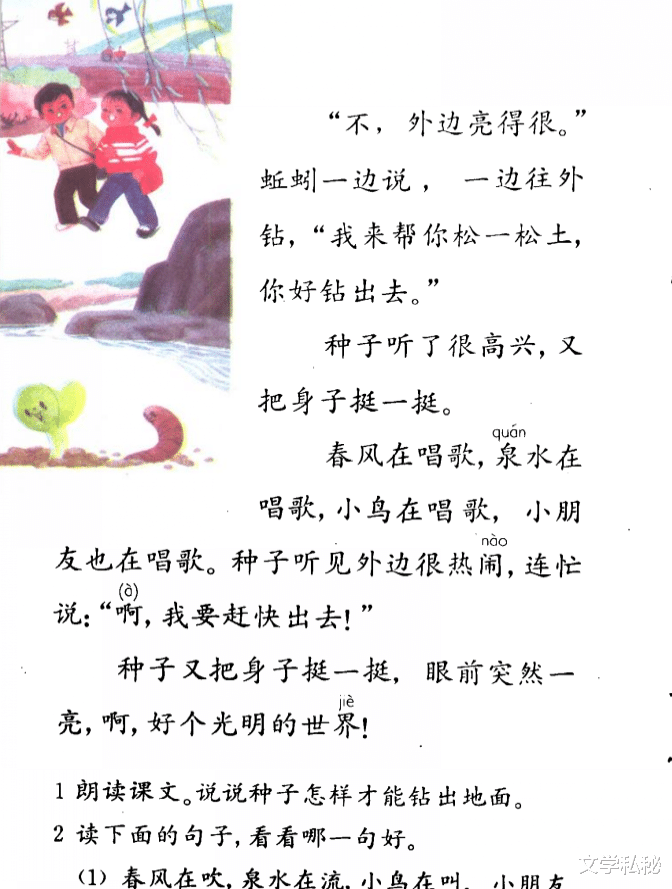 “不，外边亮得很。”
蚯蚓一边说，一边往外
钻，“我来帮你松一松土，
你好钻出去。”
种子听了很高兴，又
把身子挺一挺。
quán
春风在唱歌，泉水在
唱歌，小鸟在唱歌，小朋
nào
友也在唱歌。种子听见外边很热闹，连忙
(ò)
说：“啊，我要赶快出去！”
种子又把身子挺一挺，眼前突然一
jiè
亮，啊，好个光明的世界！
1 朗读课文。说说种子怎样才能钻出地面。
2 读下面的句子，看看哪一句好。
(1) 春风在吹，泉水在流，小鸟在叫，小朋友
文学私秘